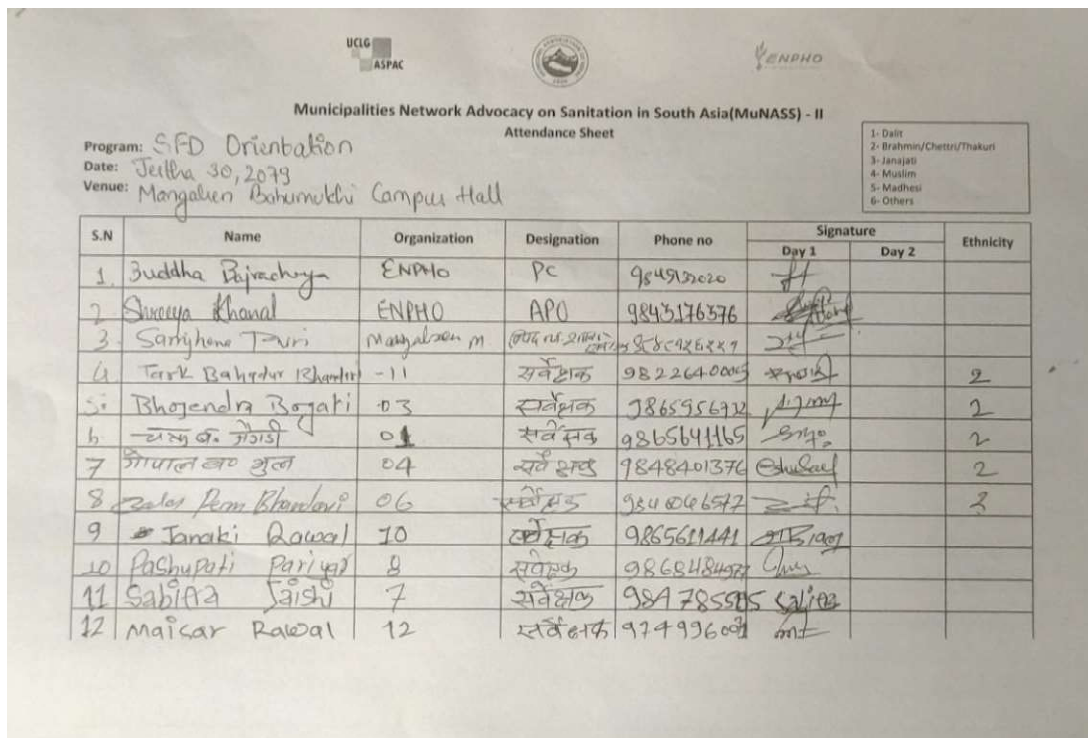 UCLG
ASPAC
ENPHO
Municipalities Network Advocacy on Sanitation in South Asia(MuNASS) - II
Attendance Sheet
Program: SFD Orientation
Date: Jestha 30, 2079
Venue: Mangalsen Bahumukhi Campus Hall
1- Dalit
2- Brahmin/Chettri/Thakuri
3- Janajati
4- Muslim
5- Madhesi
6- Others
S.N Name Organization Designation Phone no Signature Ethnicity
Day 1 Day 2
1. Buddha Bajracharya ENPHO PC
2 Shreeya Khanal ENPHO APO 9843176376
3. Mangalsen M
4. Tark Bahadur Bhandari -11 सर्वेक्षक 2
5. Bhojendra Bogati 03 सर्वेक्षक 9865956732 2
6 01 सर्वेक्षक 9865641165 2
7 गोपाल ब० भुल 04 सर्वेक्षक 9848401376 2
8 Prem Bhandari 06 सर्वेक्षक
9 Janaki Rawal 10 सर्वेक्षक 9865611441
10 Pashupati Pariyar 8 सर्वेक्षक
11 Sabitra Jaishi 7 सर्वेक्षक Sabitra
12 Maisar Rawal 12 सर्वेक्षक